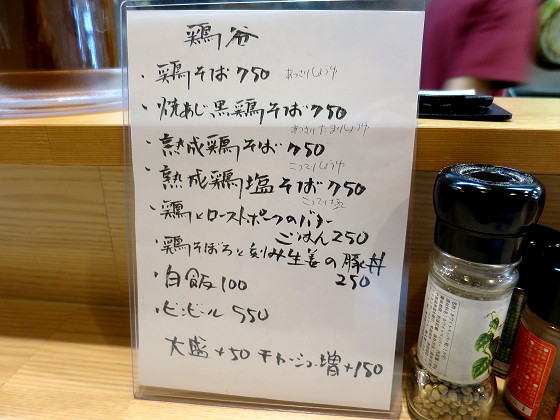 鶏谷
・鶏そば750 あっさりしょうゆ
・焼あじ黒鶏そば750
あっさりたまりしょうゆ
・熟成鶏そば750 こってりしょうゆ
・熟成鶏塩そば750
こってり塩
・鶏とローストポークのバター
ごはん250
・鶏そぼろと刻み生姜の豚丼
250
・白飯100
・ビンビール550
大盛+50 チャーシュー増+150